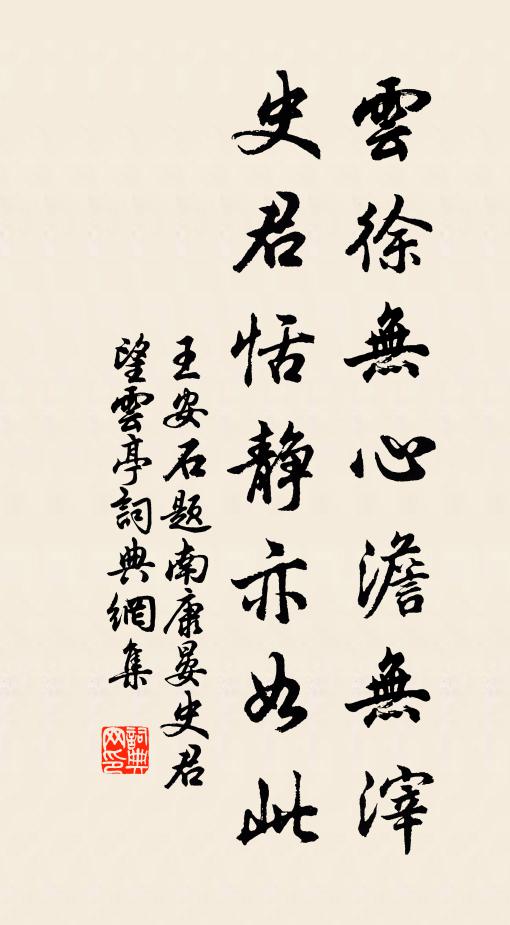 雲徐無心澹無滓
史君恬靜亦如此
王安石題南康晏史君
望雲亭詞典網集
詞典
网印